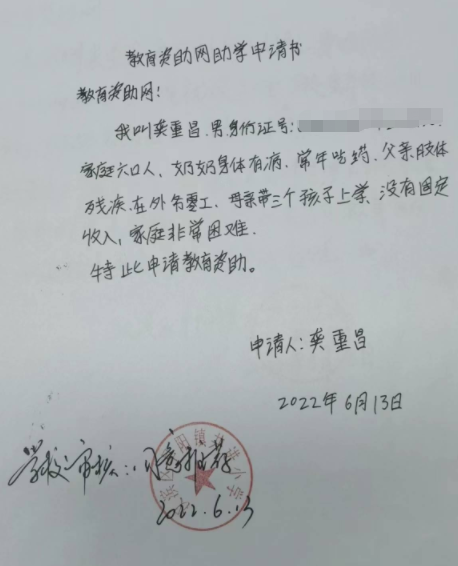 教育资助网助学申请书
教育资助网:
我叫龚重昌.男.身份证号:
家庭六口人、奶奶身体有病、常年吃药、父亲肢体
残疾.在外务零工、母亲带三个孩子上学、没有固定
收入,家庭非常困难.
特此申请教育资助。
申请人:龚重昌
2022年6月13日
学校审核:同意推荐
2022.6.13